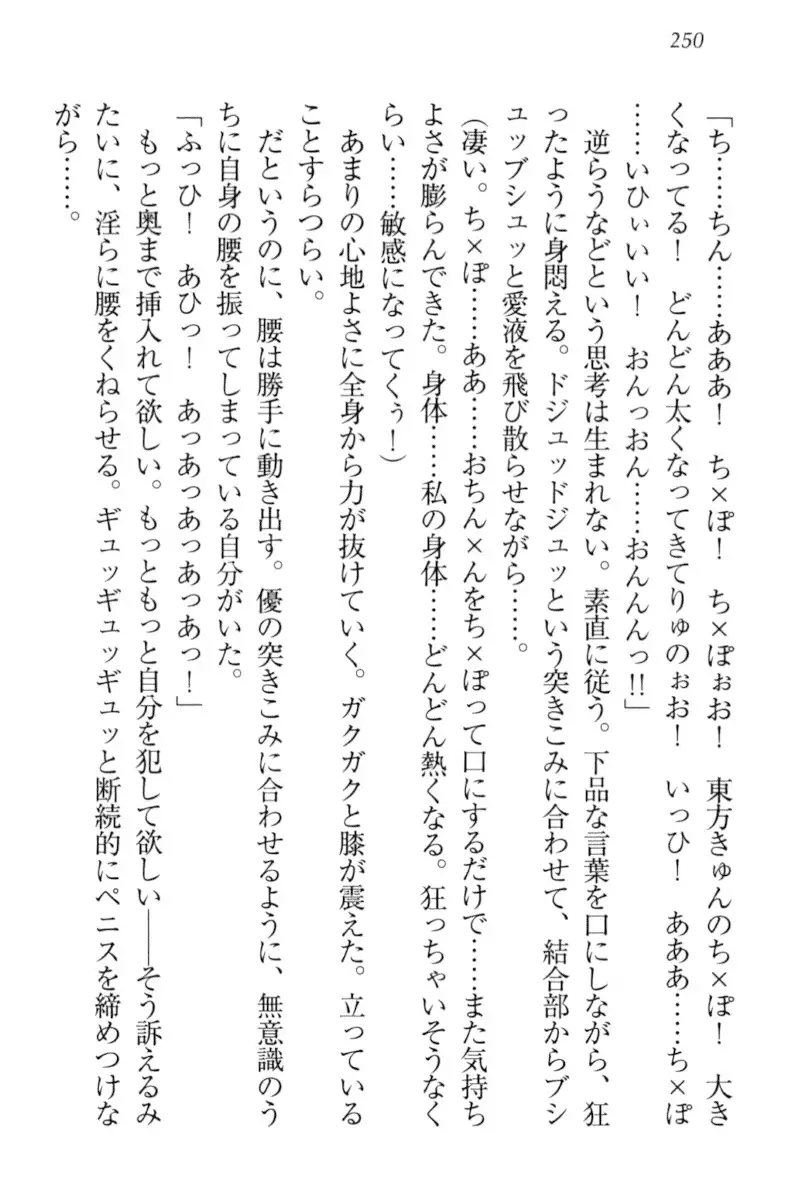 250
「ち……ちん……あああ！　ち×ぽ！　ち×ぽぉお！　東方きゅんのち×ぽ！　大き
くなってる！　どんどん太くなってきてりゅのぉお！　いっひ！　あああ……ち×ぽ
……いひぃいい！　おんっおん……おんんんっ!!」
　逆らうなどという思考は生まれない。素直に従う。下品な言葉を口にしながら、狂
ったように身悶える。ドジュッドジュッという突きこみに合わせて、結合部からブシ
ュッブシュッと愛液を飛び散らせながら……。
（凄い。ち×ぽ……ああ……おちん×んをち×ぽって口にするだけで……また気持ち
よさが膨らんできた。身体……私の身体……どんどん熱くなる。狂っちゃいそうなく
らい……敏感になってくぅ！）
　あまりの心地よさに全身から力が抜けていく。ガクガクと膝が震えた。立っている
ことすらつらい。
　だというのに、腰は勝手に動き出す。優の突きこみに合わせるように、無意識のう
ちに自身の腰を振ってしまっている自分がいた。
「ふっひ！　あひっ！　あっあっあっあっあっ！」
　もっと奥まで挿入れて欲しい。もっともっと自分を犯して欲しい――そう訴えるみ
たいに、淫らに腰をくねらせる。ギュッギュッギュッと断続的にペニスを締めつけな
がら……。